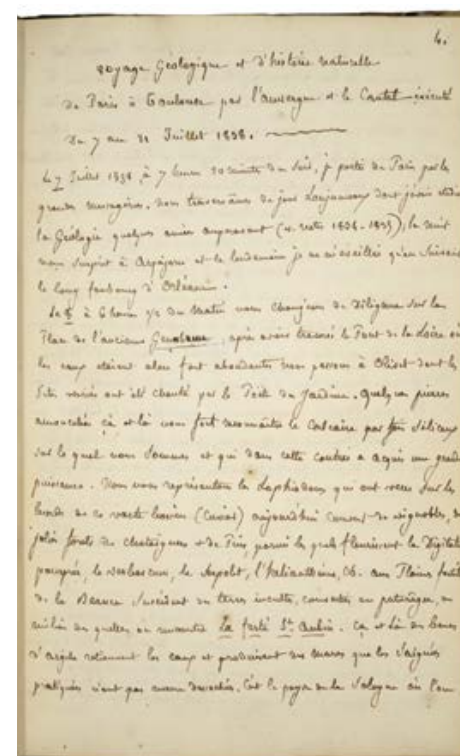 4.
voyage Géologique et d'histoire naturelle
de Paris à Toulouse par l'auvergne et le Cantal exécuté
du 7 au 31 Juillet 1838.
Le 7 Juillet 1838, à 7 heures 30 minutes du soir, je partis de Paris par les
grandes messageries. nous traversâmes de jour Longjumeau dont j'avais étudié
la Géologie quelques années auparavant (v. notes 1834-1835); la nuit
nous surprit à Arpajon et le lendemain je ne m'éveillai qu'en suivant
le long faubourg d'Orléans.
Le 8 à 6 heures 1/2 du matin nous changions de Diligence sur la
Place de l'ancienne Genabum, après avoir traversé le Pont de la Loire où
les eaux étaient alors fort abondantes nous passons à Olivet dont les
Sites variés ont été chantés par le Poète des Jardins. Quelques pierres
amoncelées çà et là nous font reconnaître le Calcaire par fois Siliceux
sur le quel nous Sommes et qui dans cette contrée a acquis une grande
puissance. Nous nous représentions les Lophiodons qui ont vécu sur les
bords de ce vaste bassin (Cuvier) aujourd'hui couvert de vignobles, de
jolies forêts de chataigners et de Pins, parmi les quels fleurissent la Digitale
pourprée, le verbascum, l'helianthème, &. aux Plaines fertiles
de la Beauce Succèdent des terres incultes, couvertes en paturages, au
milieu des quelles on rencontre La ferté St. aubin. Çà et là des bancs
d'argile retiennent les eaux et produisent des mares que les Saignées
pratiquées n'ont pas encore desséchées. C'est le pays de la Sologne où l'on